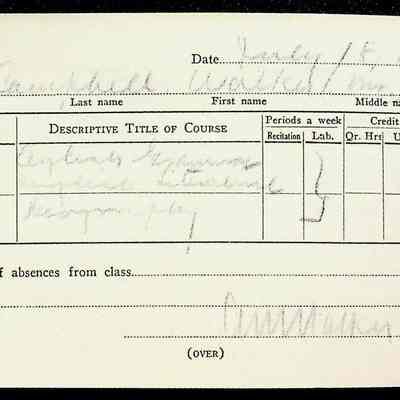 Date July 18,
Campbell Walker
Last name First name Middle na
Descriptive Title of Course Periods a week Credit
Recitation Lab. Qr. Hrs U
English Grammar
English
Geography
f absences from class
Walker
(OVER)